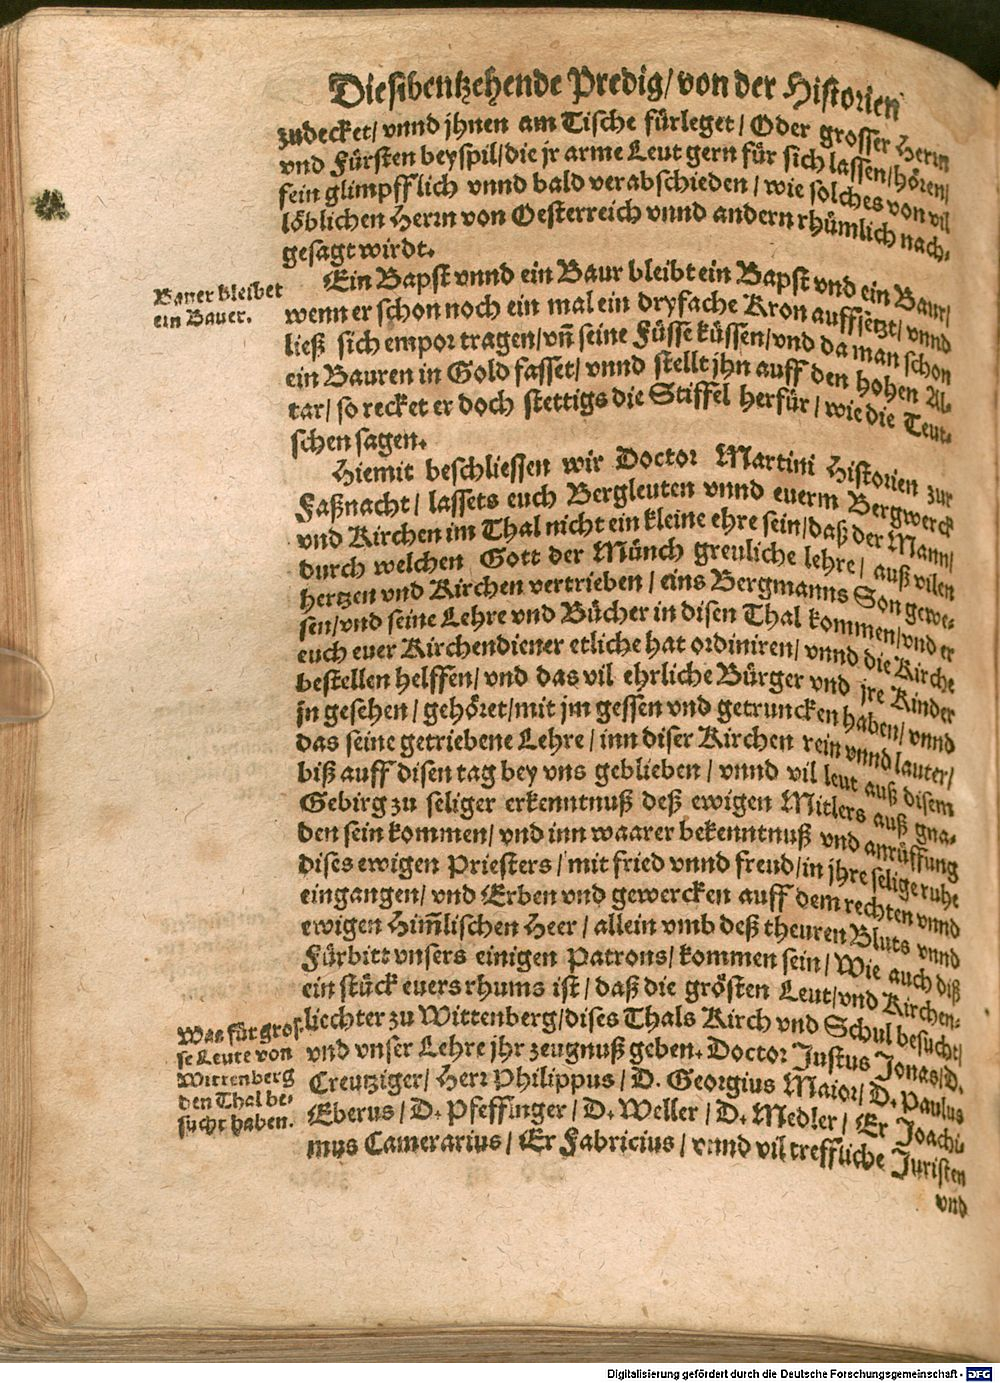 Die sibentzehende Predig/ von der Historien
zudecket/ vnnd jhnen am Tische fürleget/ Oder grosser Herrn
vnd Fürsten beyspil/ die jr arme Leut gern für sich lassen/ hören/
fein glimpfflich vnnd bald verabschieden/ wie solches von vil
löblichen Herrn von Oesterreich vnnd andern rhümlich nach-
gesagt wirdt.
Ein Bapst vnnd ein Baur bleibt ein Bapst vnd ein Baur/
Bauer bleibet
ein Bauer.
wenn er schon noch ein mal ein dryfache Kron auffsetzt/ vnnd
ließ sich empor tragen/ vñ seine Füsse küssen/ vnd da man schon
ein Bauren in Gold fasset/ vnnd stellt jhn auff den hohen Al-
tar/ so recket er doch stettigs die Stiffel herfür/ wie die Teut-
schen sagen.
Hiemit beschliessen wir Doctor Martini Historien zur
Faßnacht/ lassets euch Bergleuten vnnd euerm Bergwerck
vnd Kirchen im Thal nicht ein kleine ehre sein/ daß der Mann/
durch welchen Gott der Münch greuliche lehre/ auß vilen
hertzen vnd Kirchen vertrieben/ eins Bergmanns Son gewe-
sen/ vnd seine Lehre vnd Bücher in disen Thal kommen/ vnd er
euch euer Kirchendiener etliche hat ordiniren/ vnnd die Kirche
bestellen helffen/ vnd das vil ehrliche Bürger vnd jre Kinder
jn gesehen/ gehöret/ mit jm gessen vnd getruncken haben/ vnnd
das seine getriebene Lehre/ inn diser Kirchen rein vnnd lauter/
biß auff disen tag bey vns geblieben/ vnnd vil leut auß disem
Gebirg zu seliger erkenntnuß deß ewigen Mitlers auß gna-
den sein kommen/ vnd inn waarer bekenntnuß vnd anrüffung
dises ewigen Priesters/ mit fried vnnd freud/ in jhre selige ruhe
eingangen/ vnd Erben vnd gewercken auff dem rechten vnnd
ewigen Him̃lischen Heer/ allein vmb deß theuren Bluts vnnd
Fürbitt vnsers einigen Patrons/ kommen sein/ Wie auch diß
ein stück euers rhums ist/ daß die grösten Leut/ vnd Kirchen-
liechter zu Wittenberg/ dises Thals Kirch vnd Schul besucht/
Was für gros-
se Leute von
Wittenberg
den Thal be-
sucht haben.
vnd vnser Lehre jhr zeugnuß geben. Doctor Justus Jonas/ D.
Creutziger/ Herr Philippus/ D. Georgius Maior/ D. Paulus
Eberus/ D. Pfeffinger/ D. Weller/ D. Medler/ Er Joachi-
mus Camerarius/ Er Fabricius/ vnnd vil treffliche Juristen
vnd
Digitalisierung gefördert durch die Deutsche Forschungsgemeinschaft - DFG